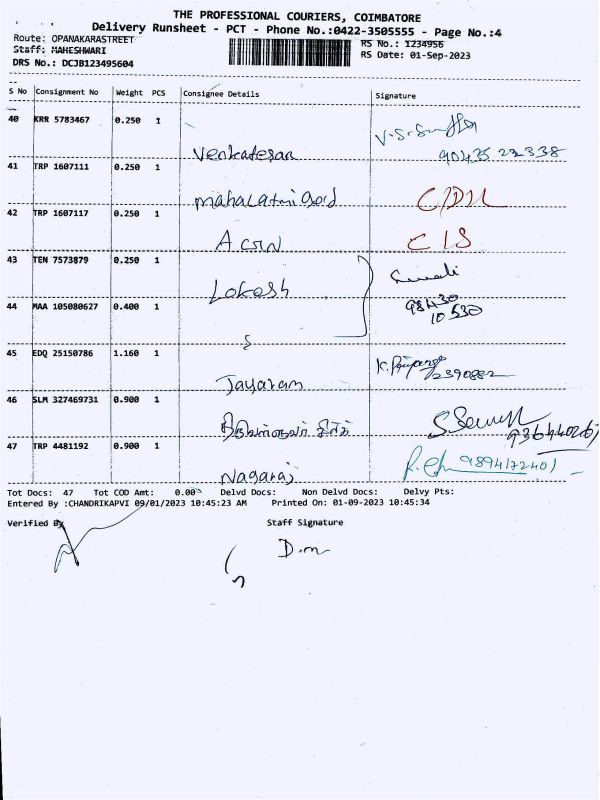 THE PROFESSIONAL COURIERS, COIMBATORE
Delivery Runsheet - PCT - Phone No.:0422-3505555 - Page No.:4
Route: OPANAKARASTREET
RS No.: 1234956
Staff: MAHESHWARI
RS Date: 01-Sep-2023
DRS No.: DCJB123495604
S No Consignment No Weight PCS Consignee Details Signature
40 KRR 5783467 0.250 1
Venkatesan
41 TRP 1607111 0.250 1
42 TRP 1607117 0.250 1
43 TEN 7573879 0.250 1
Lokesh
98430
10530
44 MAA 105080627 0.400 1
45 EDQ 25150786 1.160 1
Jayaram 2390882
46 SLM 327469731 0.900 1
47 TRP 4481192 0.900 1
Nagaraj 9894172401
Tot Docs: 47 Tot COD Amt: 0.00 Delvd Docs: Non Delvd Docs: Delvy Pts:
Entered By :CHANDRIKAPVI 09/01/2023 10:45:23 AM Printed On: 01-09-2023 10:45:34
Verified By Staff Signature